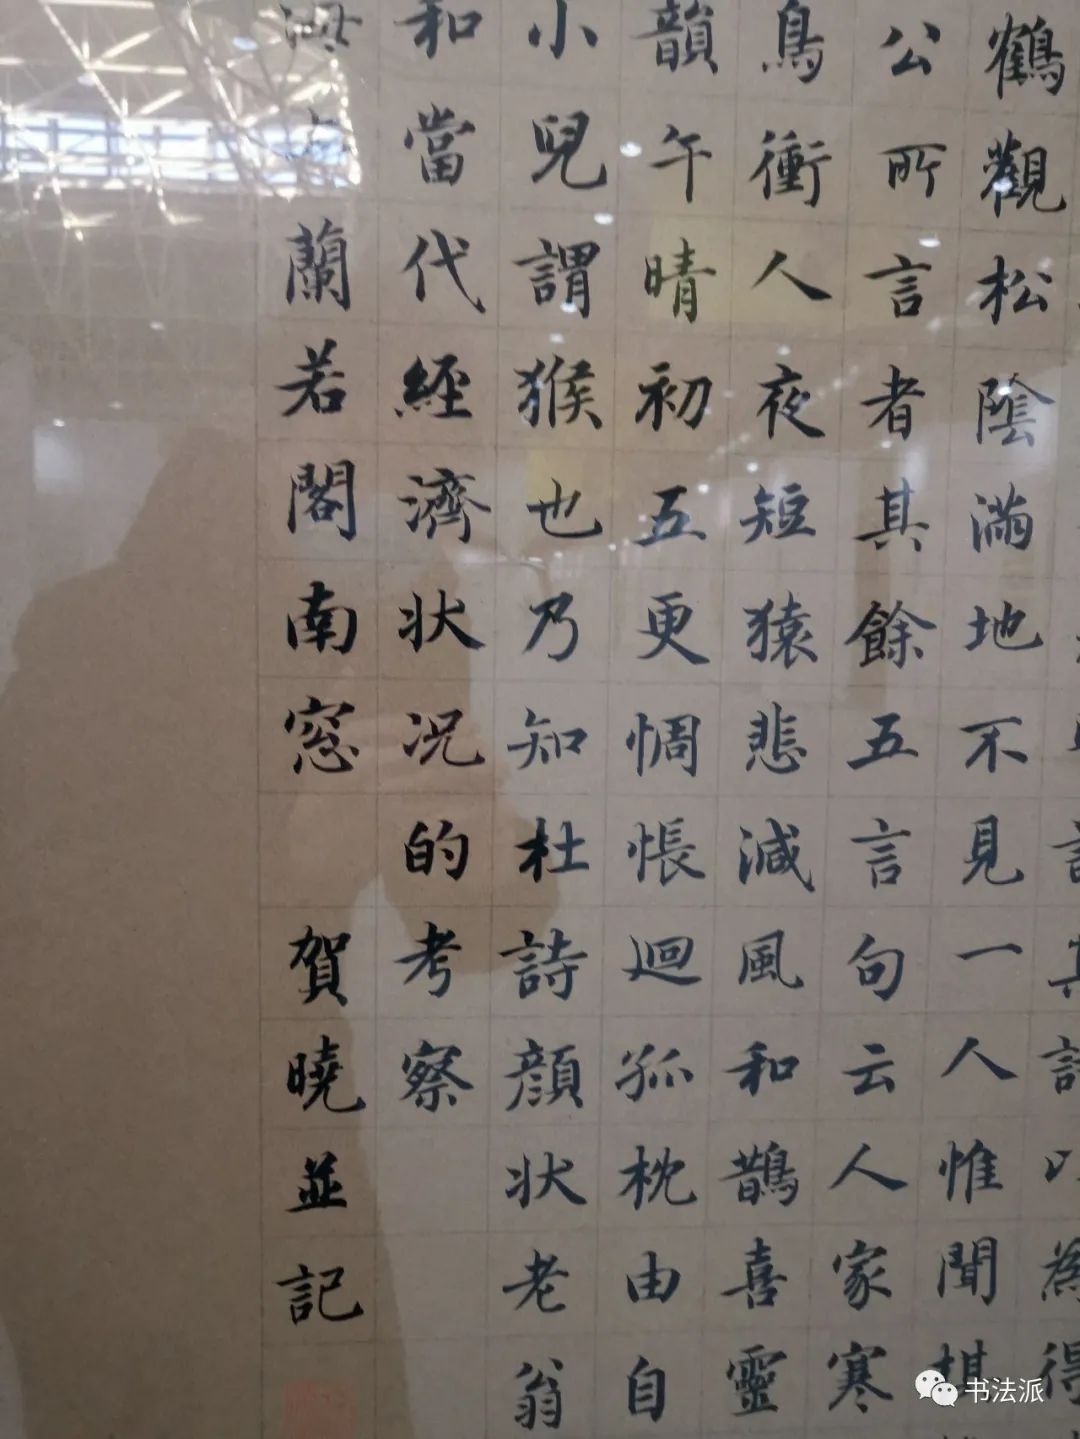 鶴觀松陰滿地不見一人惟聞棋
公所言者其餘五言句云人家寒
鳥衝人夜短猿悲減風和鵲喜靈
韻午晴初五更惆悵迴孤枕由自
小兒謂猴也乃知杜詩顏狀老翁
和當代經濟状况的考察
蘭若閣南窓 賀曉並記
书法派